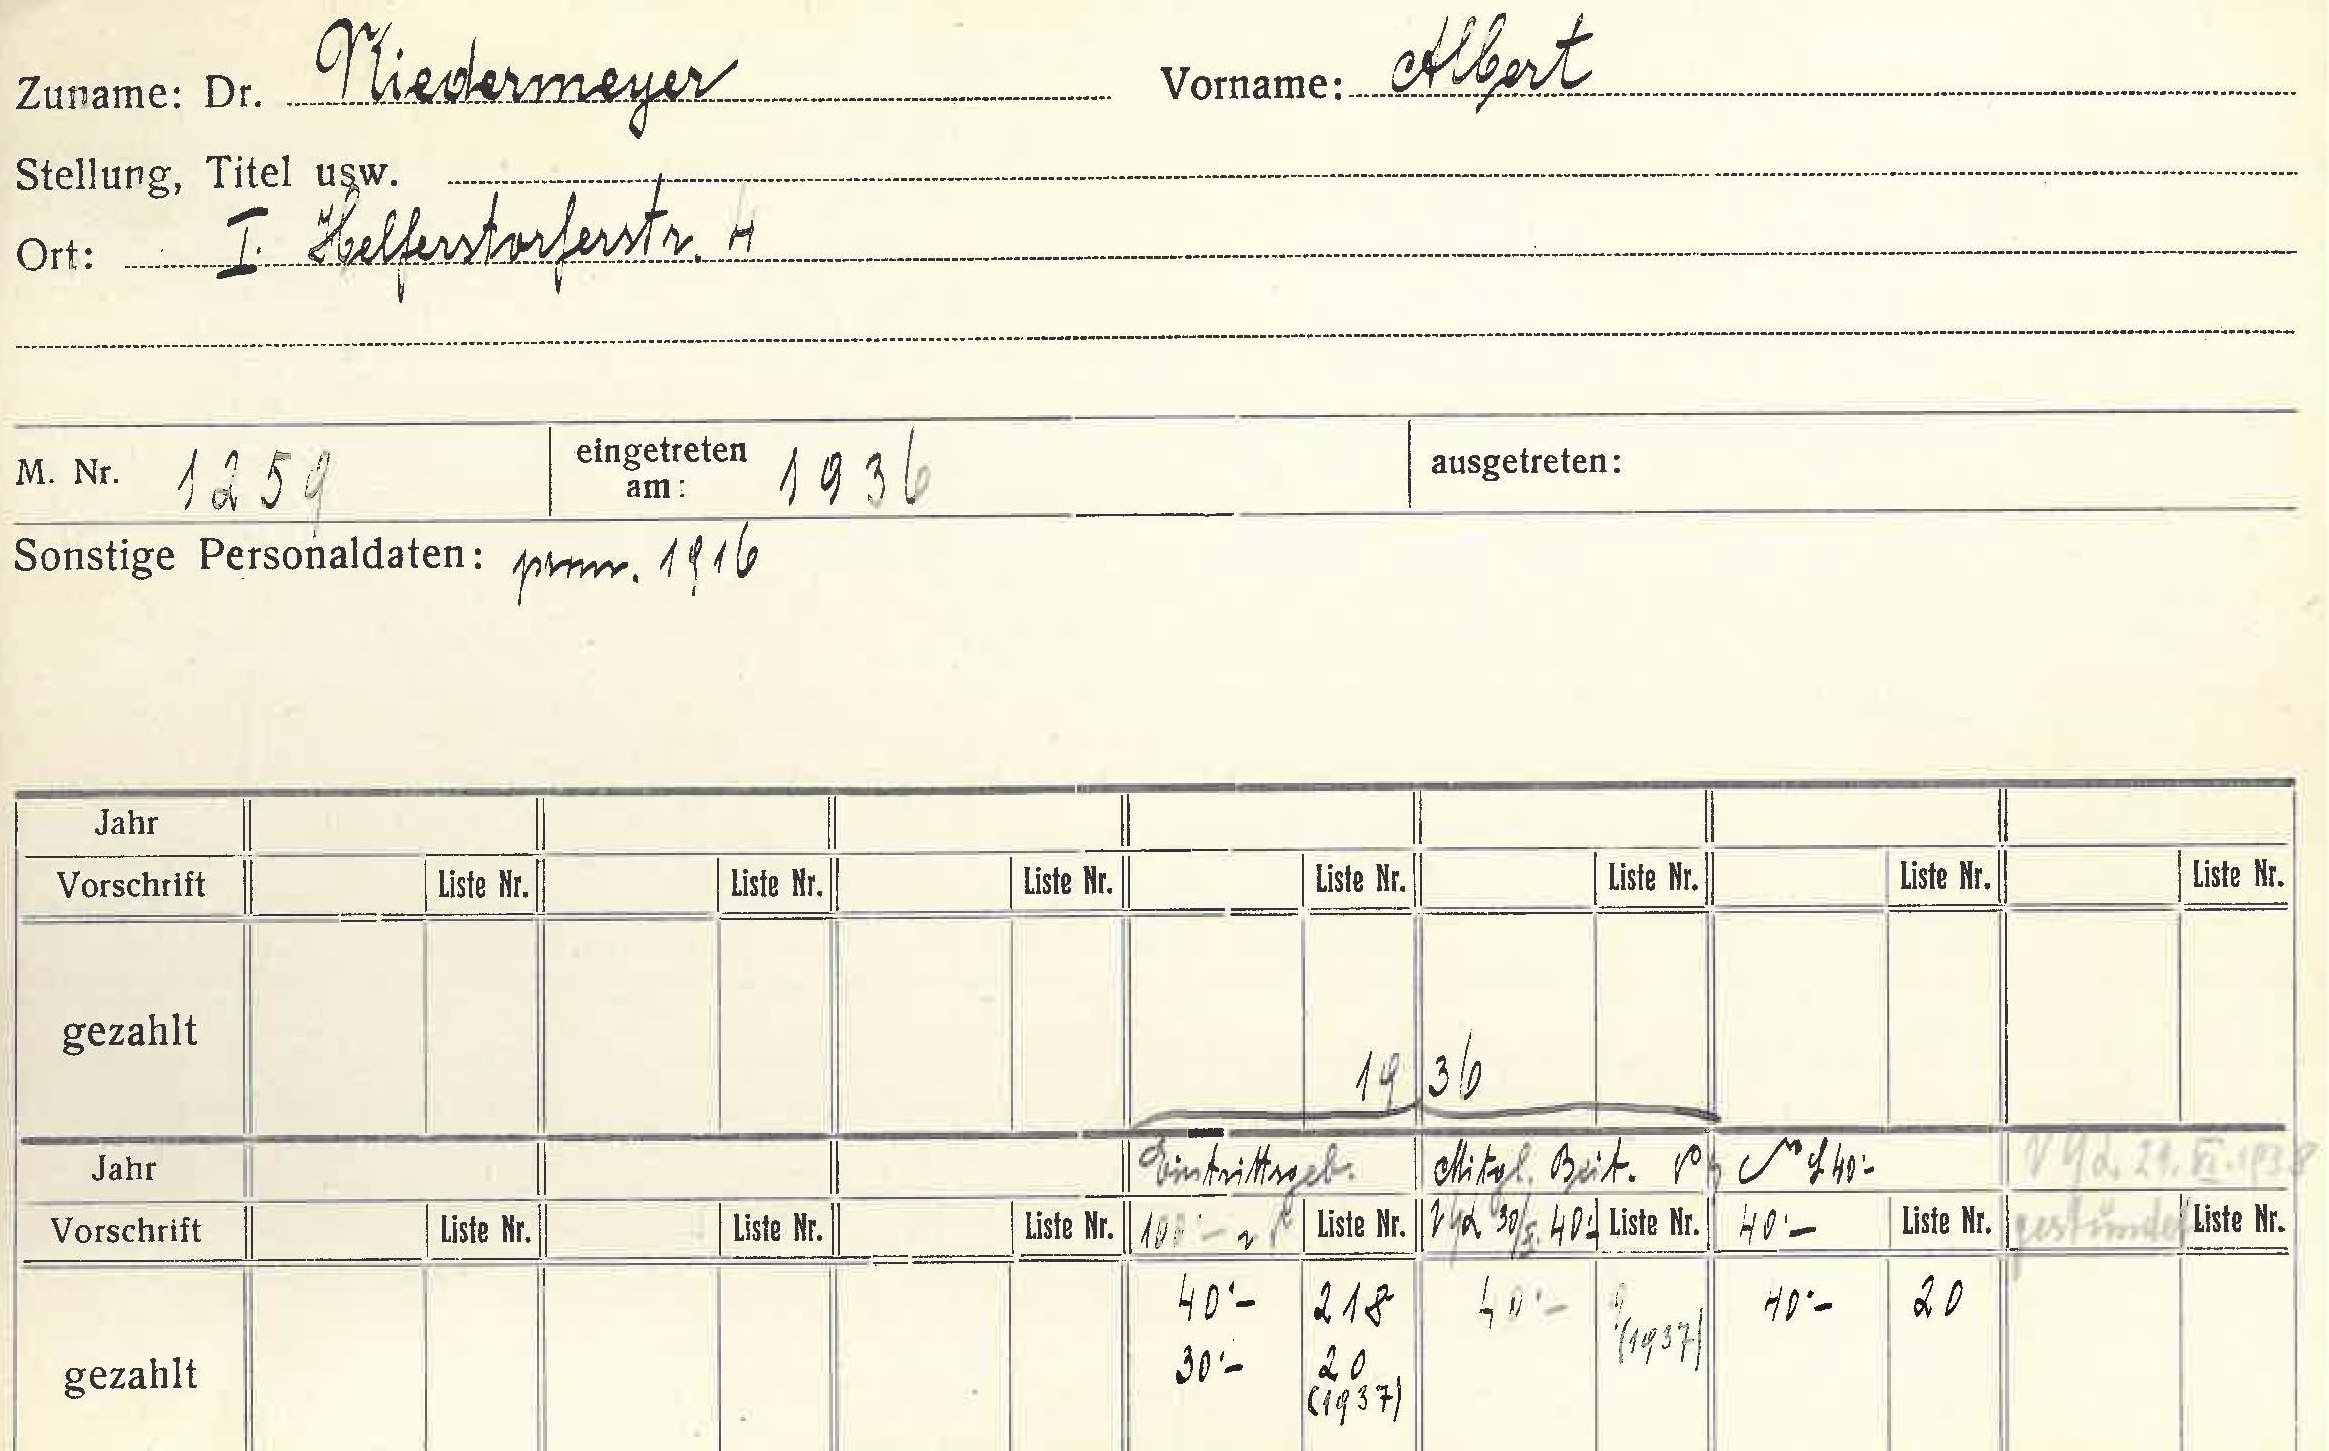 Zuname: Dr. Niedermeyer Vorname: Albert
Stellung, Titel usw.
Ort: I. Helferstorferstr. 4
M. Nr. 1259 eingetreten am: 1936 ausgetreten:
Sonstige Personaldaten: prom. 1916
Jahr
Vorschrift Liste Nr. Liste Nr. Liste Nr. Liste Nr. Liste Nr. Liste Nr. Liste Nr.
gezahlt
1936
Jahr Eintrittsgeb. Mitgl. Beit. 40'-
Vorschrift Liste Nr. Liste Nr. Liste Nr. 100'- Liste Nr. 40'- Liste Nr. 40'- Liste Nr. gestundet Liste Nr.
gezahlt
40'- 218 40'- (1937) 40'- 20
30'- 20
(1937)